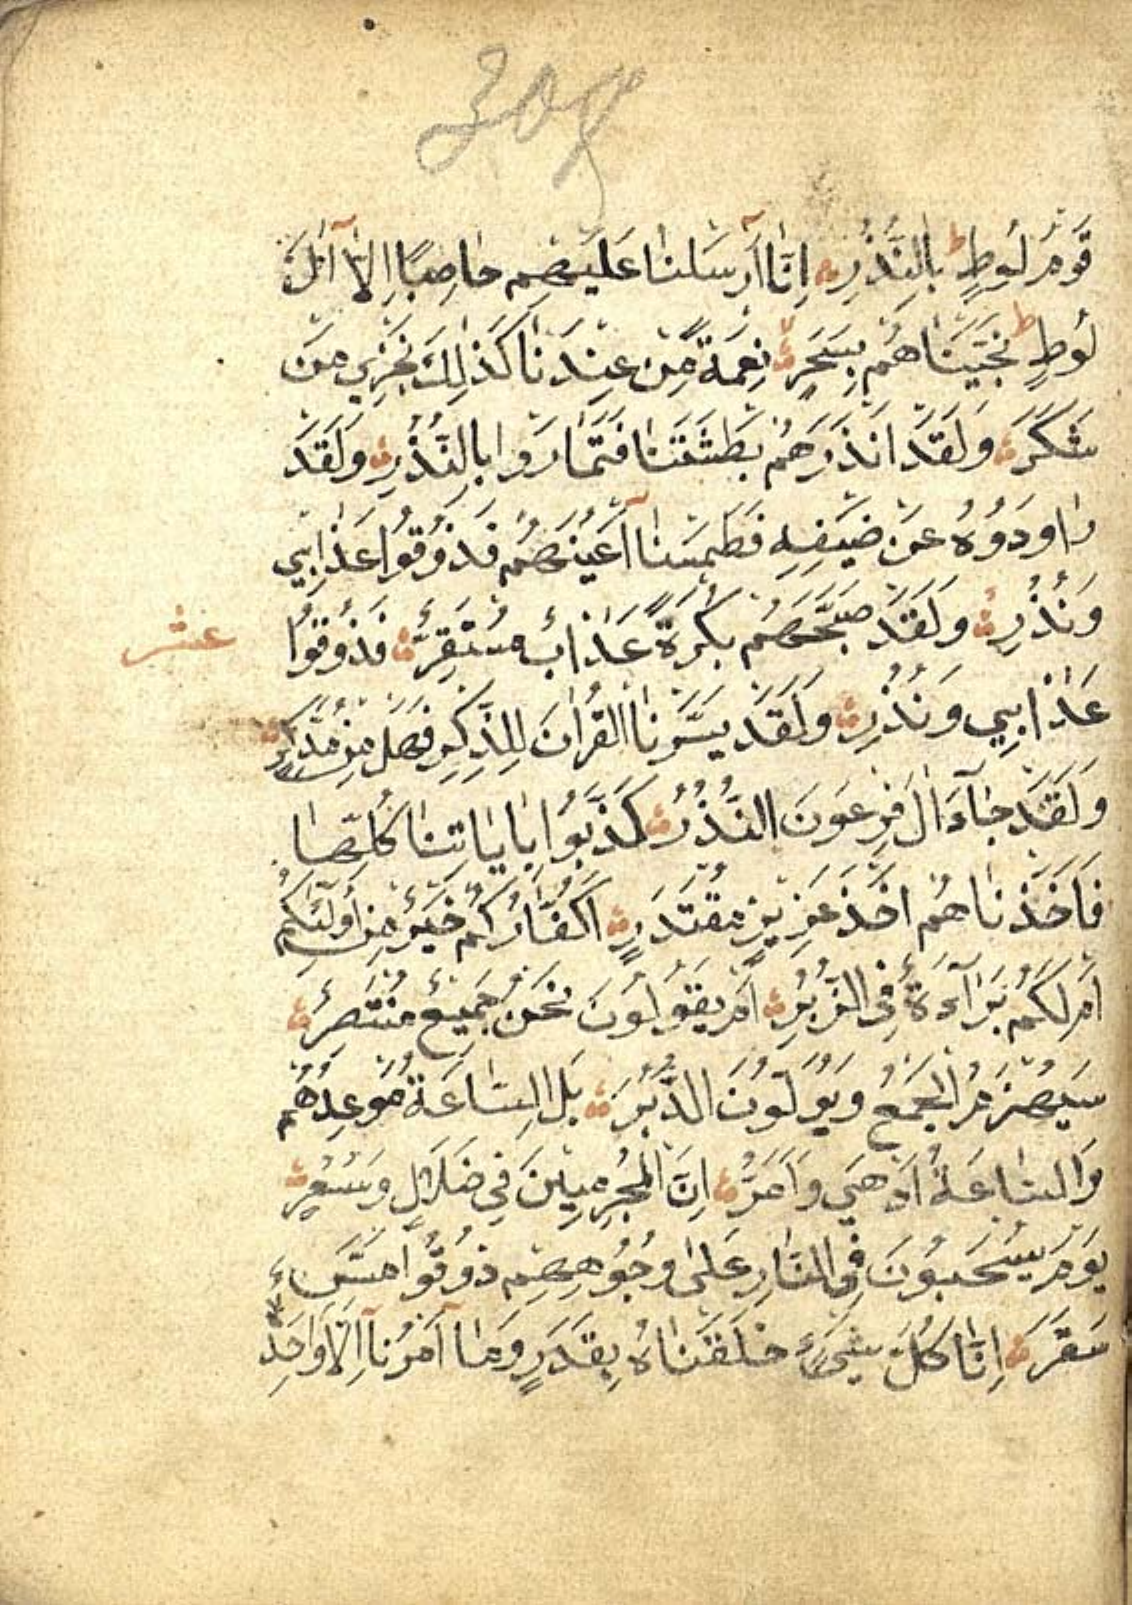 308
قَوْمُ لُوطٍ بِالنُّذُرِ اِنَّا اَرْسَلْنَا عَلَيْهِمْ حَاصِبًا اِلَّا آلَ
لُوطٍ نَجَّيْنَاهُمْ بِسَحَرٍ نِعْمَةً مِنْ عِنْدِنَا كَذٰلِكَ نَجْزِي مَنْ
شَكَرَ وَلَقَدْ اَنْذَرَهُمْ بَطْشَتَنَا فَتَمَارَوْا بِالنُّذُرِ وَلَقَدْ
رَاوَدُوهُ عَنْ ضَيْفِهِ فَطَمَسْنَا اَعْيُنَهُمْ فَذُوقُوا عَذَابِي
وَنُذُرِ وَلَقَدْ صَبَّحَهُمْ بُكْرَةً عَذَابٌ مُسْتَقِرٌّ فَذُوقُوا
عشر
عَذَابِي وَنُذُرِ وَلَقَدْ يَسَّرْنَا الْقُرْاٰنَ لِلذِّكْرِ فَهَلْ مِنْ مُدَّكِرٍ
وَلَقَدْ جَآءَ اٰلَ فِرْعَوْنَ النُّذُرُ كَذَّبُوا بِاٰيَاتِنَا كُلِّهَا
فَاَخَذْنَاهُمْ اَخْذَ عَزِيزٍ مُقْتَدِرٍ اَكُفَّارُكُمْ خَيْرٌ مِنْ اُولٰٓئِكُمْ
اَمْ لَكُمْ بَرَآءَةٌ فِي الزُّبُرِ اَمْ يَقُولُونَ نَحْنُ جَمِيعٌ مُنْتَصِرٌ
سَيُهْزَمُ الْجَمْعُ وَيُوَلُّونَ الدُّبُرَ بَلِ السَّاعَةُ مَوْعِدُهُمْ
وَالسَّاعَةُ اَدْهٰي وَاَمَرُّ اِنَّ الْمُجْرِمِينَ فِي ضَلَالٍ وَسُعُرٍ
يَوْمَ يُسْحَبُونَ فِي النَّارِ عَلٰى وُجُوهِهِمْ ذُوقُوا مَسَّ
سَقَرَ اِنَّا كُلَّ شَيْءٍ خَلَقْنَاهُ بِقَدَرٍ وَمَا اَمْرُنَآ اِلَّا وَاحِدَةٌ